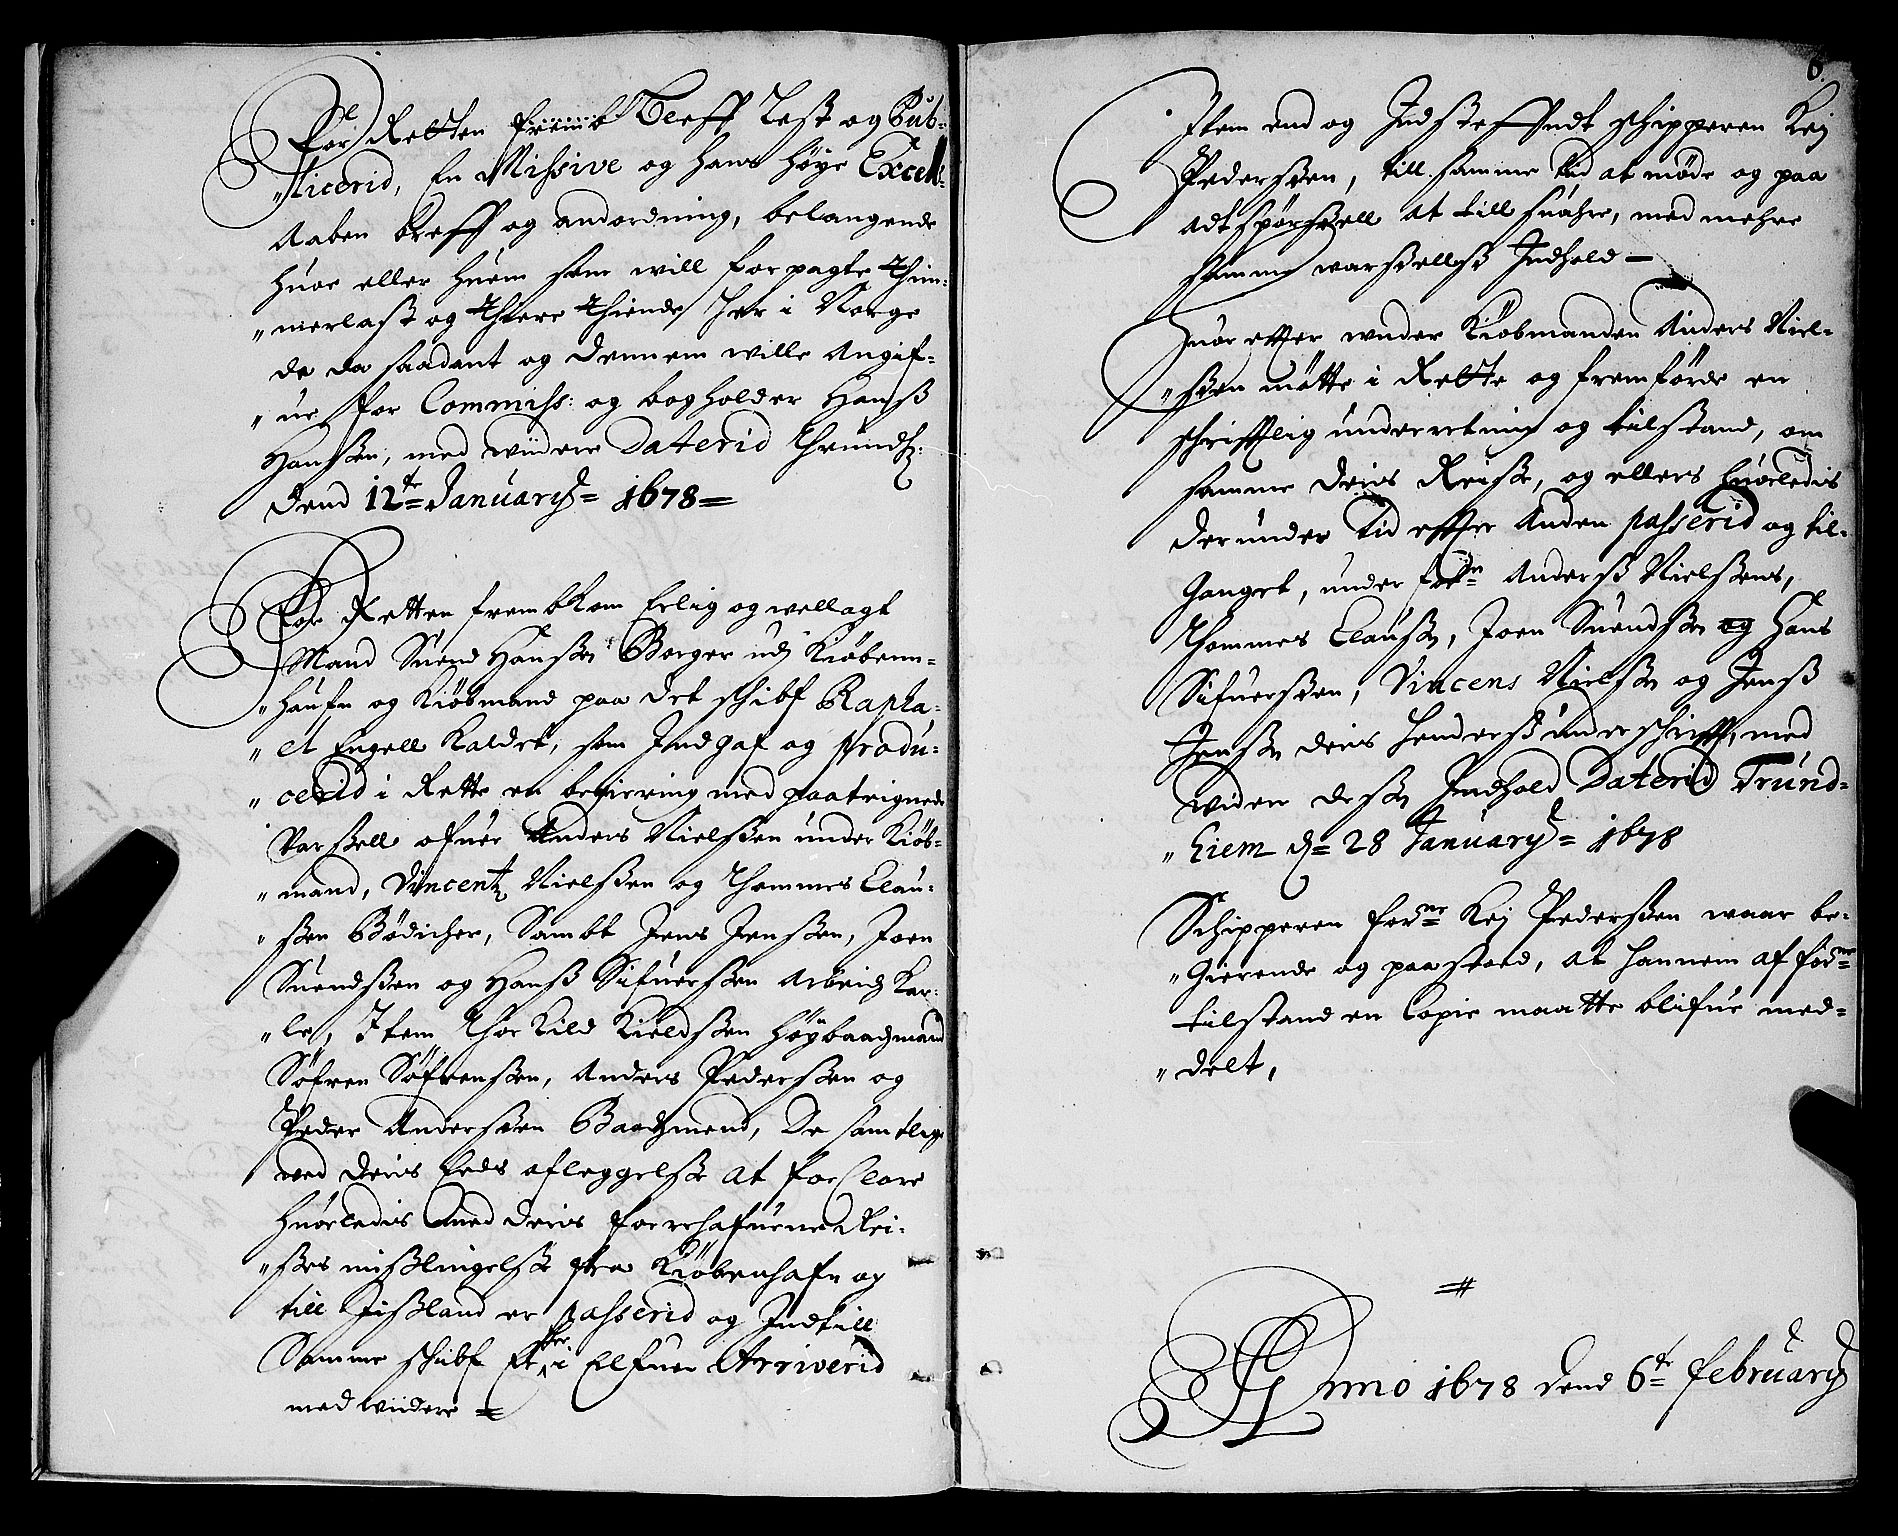 For Retten fremb bleff Lest og Pub-
„licerid, En Missive og hans höye Excell:
Aaben breff og andordning, belangende
huor eller huem som will forpagte Thim-
„merlast og Thiere Thiende her i Norge
de da saadant og dennem wille Angif-
„ue for Commiss: og bogholder Hanß
Hanßen, med widere Daterid Thrundh:
Dend 12te January = 1678 =
For Retten frembkom Erlig og wellagt
Mand Suend Hanßen Borger udj Kiöbenn-
„haufn og Kiöbmand paa det schibf Rapha-
„el Engell Kaldet, som Indgaf og produ-
„cerid i Rette en begiering med paateignede
Varßell ofuer Anders Nielßen under Kiöb-
„mand, Vincentz Nielßen og Thommes Clau-
„ßen Bödicher, Sambt Jens Jenßen, Joen
Suendßen og Hanß Sifuerßen Arbeidz Kar-
„le, Item Thorkild Kieldßen Höybaadzmand
Söfren Söfrenßen, Anders Pederßen og
Peder Anderßen Baadzmend, De samtlige
ved deris Eeds afleggelße at forclare
huorledis med deris forrehafuene Rei-
„ßes mißlingelße fra Kiöbenhafn og
till Jißland er passerid og Indtill
Samme schibf her i Elfuen Arriverid
med widere =
6.
Item end og Indsteffndt schipperen Kej
Pederßen, till samme tid at möde og paa
adtspörßell at till suahre, med mehre
samme warßellß Indhold —
Huor effter under Kiöbmanden Anders Niel-
„ßen mötte i Rette og fremförde en
schrifftlig underretning og tilstand, om
samme deris Reiße, og ellers huorledis
derunder tid effter Anden passerid og til-
Ganget, under forn Anderß Nielßens,
Thommes Claußen, Joen Suendßen og Hans
Sifuerßen, Vincens Nielßen og Jenß
Jenßen deris henderß underschrifft, med
widere deßen Indhold Daterid Trund-
„hiem d = 28 January = 1678
Schipperen forne Kej Pederßen waar be-
„Gierende og paastoed, at hannem af fodne
tilstand en Copie maatte blifue med-
„delt,
Anno 1678 dend 6te february